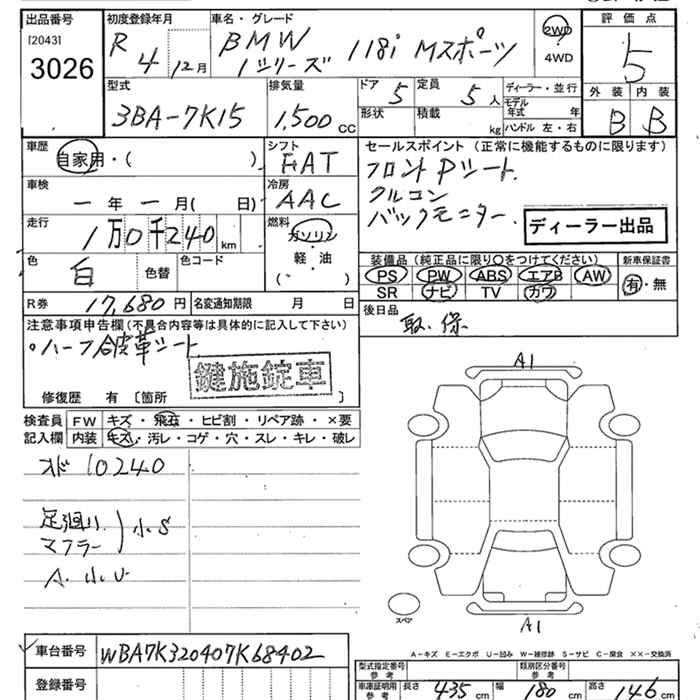 出品番号 初度登録年月 車名・グレード 評価点
[2043] R 4 12月 BMW 1シリーズ 118i Mスポーツ 2WD 4WD 5
3026
型式 排気量 ドア 5 定員 5人 ディーラー・並行 外装 内装
3BA-7K15 1,500 CC 形状 積載 kg モデル年式 年 B B
ハンドル 左・右
車歴 シフト セールスポイント (正常に機能するものに限ります)
自家用・( ) FAT フロントPシート.
車検 冷房 クルコン
ー年ー月( 日) AAC バックモニター. ディーラー出品
走行 燃料
1万0千240km ガソリン
色 色替 色コード 軽・油 装備品 (純正品に限り○をつけてください) 新車保証書
白 ( ) PS PW ABS エアB AW 有・無
SR ナビ TV カワ
R券 17,680円 名変通知期限 月 日 後日品
注意事項申告欄 (不具合内容等は具体的に記入して下さい) 取.保
・ハーフ合皮革シート
鍵施錠車
修復歴 有 〔箇所 〕
A1
検査員 FW キズ・飛石・ヒビ割・リペア跡・×要
記入欄 内装 キズ・汚レ・コゲ・穴・スレ・キレ・破レ
オド 10240
足廻り. 小.S
マフラー
A.小.U
スペア
A1
A-キズ E-エクボ U-凹み W-補修跡 S-サビ C-腐食 ××-交換済
車台番号 WBA7K320407K68402
型式指定番号 参考 類別区分番号 参考
登録番号 車庫証明用 参考 長さ 435cm 幅 180cm 高さ 146cm